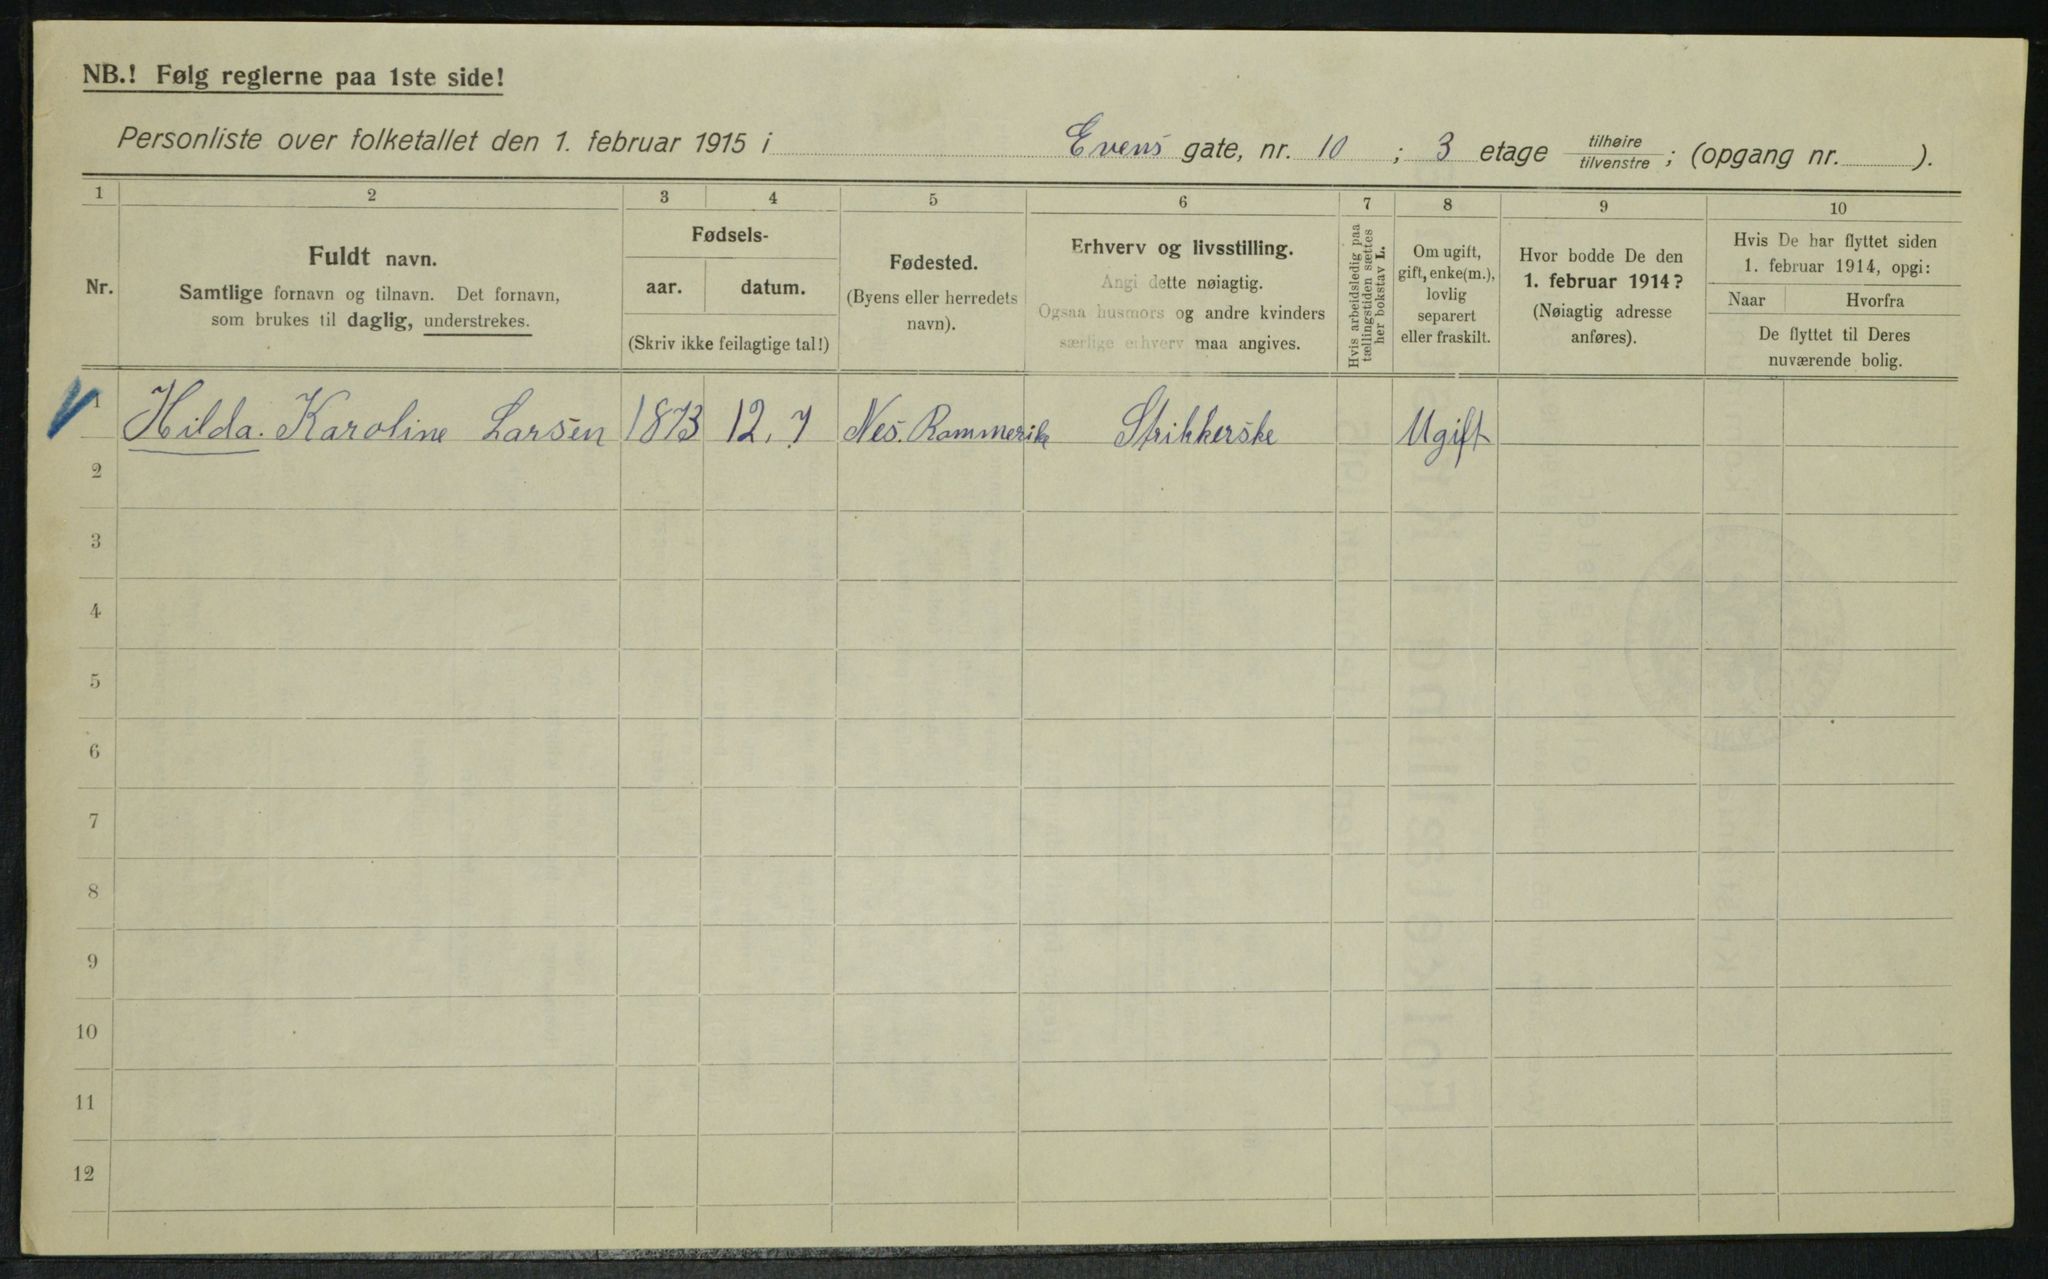 NB.! Følg reglerne paa 1ste side!
Personliste over folketallet den 1. februar 1915 i Evens gate, nr. 10 ; 3 etage tilhøire / tilvenstre ; (opgang nr. ).
1 2 3 4 5 6 7 8 9 10
Nr.
Fuldt navn.
Samtlige fornavn og tilnavn. Det fornavn,
som brukes til daglig, understrekes.
Fødsels-
aar. datum.
(Skriv ikke feilagtige tal!)
Fødested.
(Byens eller herredets
navn).
Erhverv og livsstilling.
Angi dette nøiagtig.
Ogsaa husmors og andre kvinders
særlige erhverv maa angives.
Hvis arbeidsledig paa
tællingstiden sættes
her bokstav L.
Om ugift,
gift, enke(m.),
lovlig
separert
eller fraskilt.
Hvor bodde De den
1. februar 1914?
(Nøiagtig adresse
anføres).
Hvis De har flyttet siden
1. februar 1914, opgi:
Naar Hvorfra
De flyttet til Deres
nuværende bolig.
1 Hilda. Karoline Larsen 1873 12. 7 Nes. Rommerik Strikkerske Ugift
2
3
4
5
6
7
8
9
10
11
12